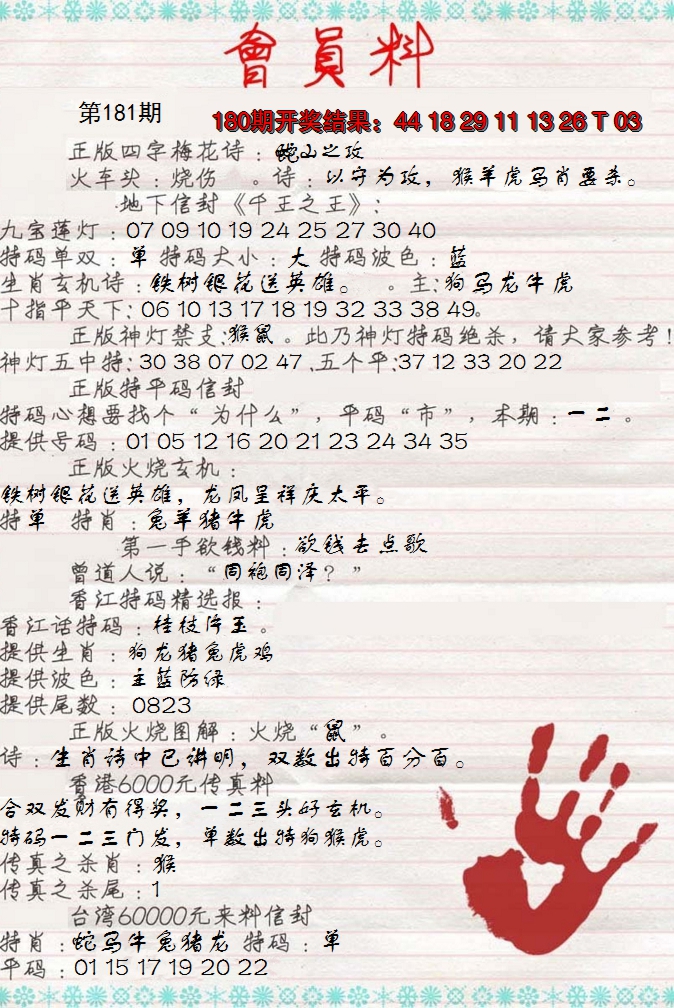 會員料
第181期
180期开奖结果：44 18 29 11 13 26 T 03
正版四字梅花诗：蛇山之攻
火车头：烧伤 。诗：以守为攻，猴羊虎马肖要杀。
地下信封《千王之王》：
九宝莲灯：07 09 10 19 24 25 27 30 40
特码单双：单 特码大小：大 特码波色：蓝
生肖玄机诗：铁树银花送英雄。 。主：狗马龙牛虎
十指平天下：06 10 13 17 18 19 32 33 38 49。
正版神灯禁支：猴鼠。此乃神灯特码绝杀，请大家参考！
神灯五中特：30 38 07 02 47 .五个平：37 12 33 20 22
正版特平码信封
特码心想要找个“为什么”，平码“市”，本期：一二。
提供号码：01 05 12 16 20 21 23 24 34 35
正版火烧玄机：
铁树银花送英雄，龙凤呈祥庆太平。
特单 特肖：兔羊猪牛虎
第一手欲钱料：欲钱去点歌
曾道人说：“同袍同泽？”
香江特码精选报：
香江话特码：桂枝片玉。
提供生肖：狗龙猪兔虎鸡
提供波色：主蓝防绿
提供尾数：0823
正版火烧图解：火烧“鼠”。
诗：生肖诗中已讲明，双数出特百分百。
香港6000元传真料
合双发财有得奖，一二三头好玄机。
特码一二三门发，单数出特狗猴虎。
传真之杀肖：猴
传真之杀尾：1
台湾60000元来料信封
特肖：蛇马牛兔猪龙 特码：单
平码：01 15 17 19 20 22